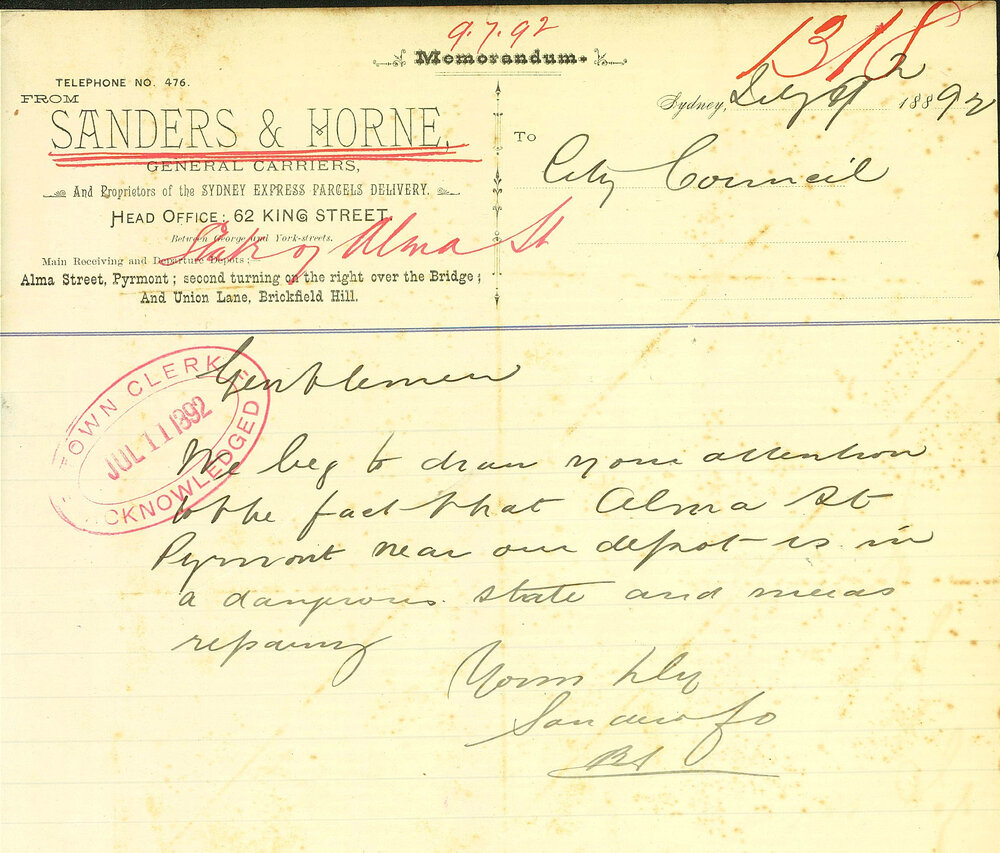 9.7.92
Memorandum.
1318
TELEPHONE NO. 476.
FROM
SANDERS & HORNE,
GENERAL CARRIERS,
And Proprietors of the SYDNEY EXPRESS PARCELS DELIVERY.
HEAD OFFICE: 62 KING STREET.
Between George and York-streets.
State of Alma St
Main Receiving and Departure Depots:—
Alma Street, Pyrmont; second turning on the right over the Bridge;
And Union Lane, Brickfield Hill.
Sydney, July 9 1892
To
City Council
TOWN CLERK
JUL 11 1892
ACKNOWLEDGED
Gentlemen
We beg to draw your attention
to the fact that Alma St
Pyrmont near our depot is in
a dangerous state and needs
repairing
Yours